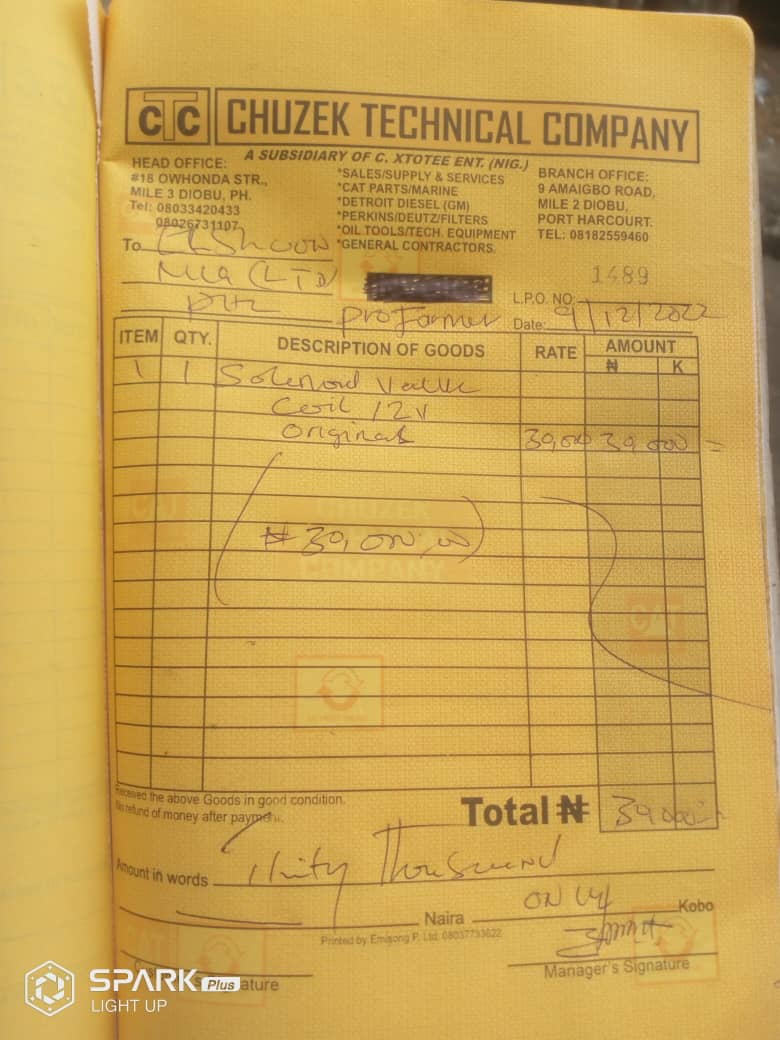 CTC CHUZEK TECHNICAL COMPANY
A SUBSIDIARY OF C. XTOTEE ENT. (NIG.)
HEAD OFFICE:
#18 OWHONDA STR.,
MILE 3 DIOBU, PH.
Tel: 08033420433
08026731107
*SALES/SUPPLY & SERVICES
*CAT PARTS/MARINE
*DETROIT DIESEL (GM)
*PERKINS/DEUTZ/FILTERS
*OIL TOOLS/TECH. EQUIPMENT
*GENERAL CONTRACTORS.
BRANCH OFFICE:
9 AMAIGBO ROAD,
MILE 2 DIOBU,
PORT HARCOURT.
TEL: 08182559460
To
(LTD)
1489
L.P.O. NO:
Date: 9/12/2022
ITEM QTY. DESCRIPTION OF GOODS RATE AMOUNT
₦ K
1 1 Solenoid Valve
Coil 12V
Original 30,000 30,000 =
₦ 30,000,00
CHUZEK
COMPANY
CAT
CAT
Received the above Goods in good condition.
No refund of money after payment.
Total ₦ 30,000
Amount in words Thirty Thousand
Naira ONLY Kobo
Printed by Emisong P. Ltd. 08037733622
Manager's Signature
SPARK Plus
LIGHT UP